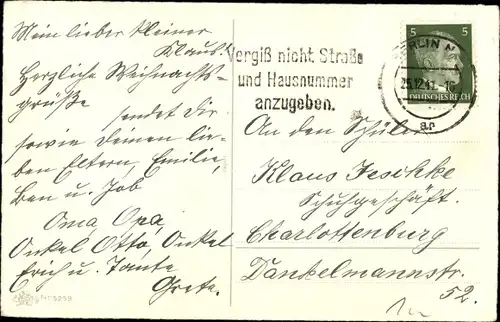 Mein lieber kleiner
Klaus!
Herzliche Weihnachts-
grüße
sendet dir
sowie deinen lie-
ben Eltern, Emilie,
Ben u. Job
Oma, Opa,
Onkel Otto, Onkel
Erich u. Tante
Grete.
Nr 5259
Vergiß nicht Straße
und Hausnummer
anzugeben.
5 5
DEUTSCHES REICH
BERLIN N
25.12.41.
ar
An den Schüler
Klaus Jeschke
Schuhgeschäft
Charlottenburg
Dankelmannstr.
52.